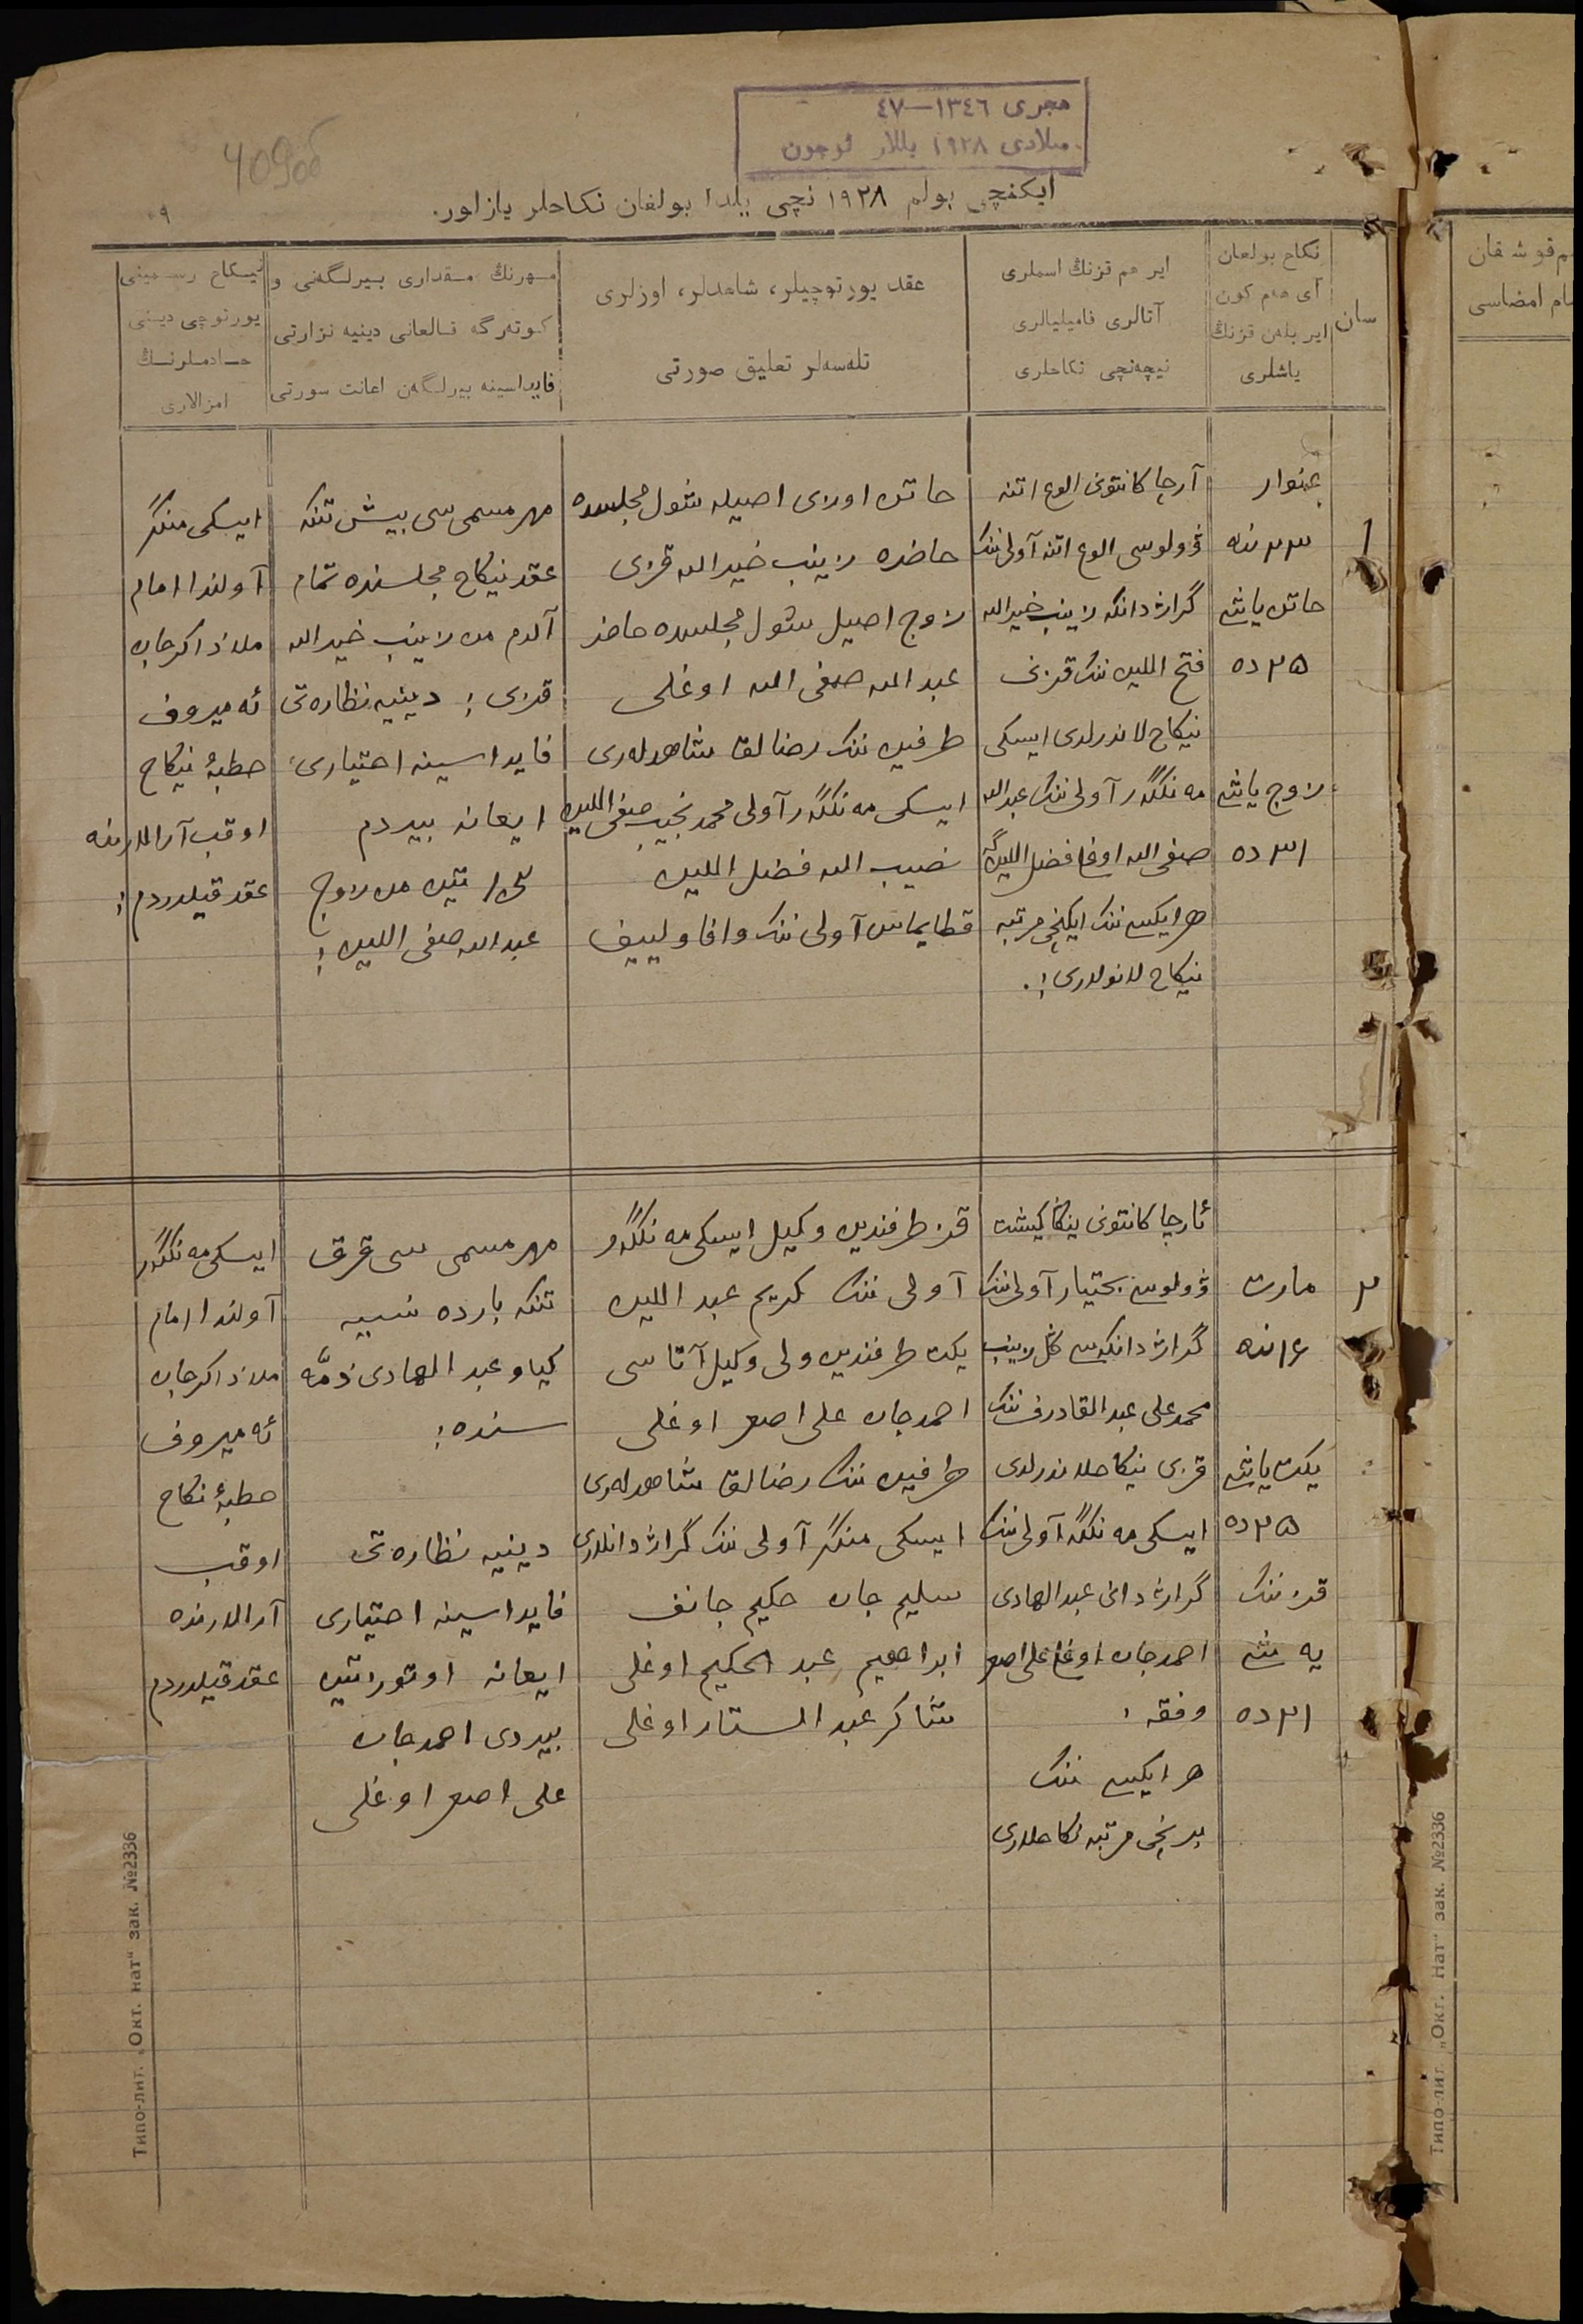 هجری ١٣٤٦—٤٧
میلادی ١٩٢٨ یللار ئوچون
409об
٩
ایكنچی بولم ١٩٢٨ نچی یلدا بولغان نكاحلر یازلور.
سان
نكاح بولغان
آی هم كون
ایر بلەن قزنڭ
یاشلری
ایر هم قزنڭ اسملری
آتالری فامیلیالری
نیچەنچی نكاحلری
عقد یورتوچیلر، شاهدلر، اوزلری
تلەسەلر تعلیق صورتی
مهرنڭ مقداری بیرلگەنی و
كوتەرگە قالغانی دینیه نزارتی
فایداسینه بیرلگەن اعانت سورتی
نیكاح رسمینی
یورتوچی دینی
خادملرنڭ
امزالاری
١
عنوار
٢٣ نده
خاتن یاشی
٢٥ ده
زوج یاشی
٣١ ده
آرچا كانتونی الوغ اتنه
ڤولوسی الوغ اتنه آولی ننڭ
گراژدانكه زینب خیرالله
فتح اللین ننڭ قزنی
نیكاح لاندرلدی ایسكی
مه نگگر آولی ننڭ عبدالله
صفی الله اوغلی فضل اللین گه
هر ایكیسی ننڭ ایكنچی مرتبه
نیكاح لانولری!.
خاتن اوزی اصیله شول مجلسده
حاضره زینب خیرالله قزی
زوج اصیل شول مجلسده حاضر
عبدالله صفی الله اوغلی
طرفین ننڭ رضالق شاهدلەری
ایسكی مه نگگر آولی محمد نجیب صفی اللین
نصیب الله فضل اللین
قطایماس آولی ننڭ وافا ولییف
مهر مسمی سی بیش تنكه
عقد نیكاح مجلسنده تمام
آلدم من زینب خیرالله
قزی؛ دینیه نظاره تی
فایداسینه اختیاری
ایعانه بیردم
تین من زوج
عبدالله صفی اللین؛
ایسكی منگر
آولندا امام
ملا ذاكرجان
ئه میروف
خطبۀ نیكاح
اوقب آرالارنده
عقد قیلدردم؛
٢
مارت
١٤ نده
یكت یاشی
٢٥ ده
قز ننڭ
یه شی
٢١ ده
ئارچا كانتونی ینگا كیشت
ڤولوسی بختیار آولی ننڭ
گراژدانكەسی گل زینب
محمد علی عبدالقادرف ننڭ
قزی نیكاحلاندرلدی
ایسكی مه نگگر آولی ننڭ
گراژدانی عبدالهادی
احمدجان اوغلی علی اصغر
وفقه ؛
هر ایكیسی ننڭ
برنچی مرتبه نكاحلری
قز طرفندین وكیل ایسكی مه نگگر
آولی ننڭ كریم عبداللین
یكت طرفندین ولی وكیل آتاسی
احمدجان علی اصغر اوغلی
طرفین ننڭ رضالق شاهدلەری
ایسكی منگر آولی ننڭ گراژدانلاری
سلیم جان حكیم جانف
ابراهیم عبدالحكیم اوغلی
شاكر عبدالستار اوغلی
مهر مسمی سی قرق
تنكه بارده نسییه
كیاو عبدالهادی ذمّه
سنده؛
دینیه نظاره تی
فایداسینه اختیاری
ایعانه اوتوز تین
بیردی احمدجان
علی اصغر اوغلی
ایسكی مه نگگر
آولندا امام
ملا ذاكرجان
ئه میروف
خطبۀ نكاح
اوقب
آرالارنده
عقد قیلدردم
م قوشقان
امضاسی
Типо-лит. „Окт. нат“ зак. №2336
Типо-лит. „Окт. Нат“ зак. №2336